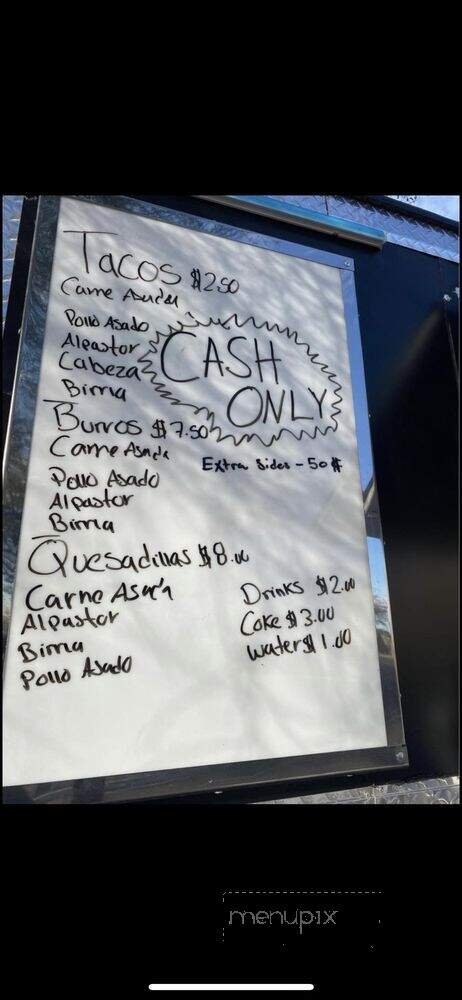 Tacos $2.50
Carne Asada
Pollo Asado
Alpastor
Cabeza
Birria
CASH
ONLY
Burros $7.50
Carne Asada
Extra Sides - 50¢
Pollo Asado
Alpastor
Birria
Quesadillas $8.00
Carne Asada
Alpastor
Birria
Pollo Asado
Drinks $2.00
Coke $3.00
Water $1.00
menupix